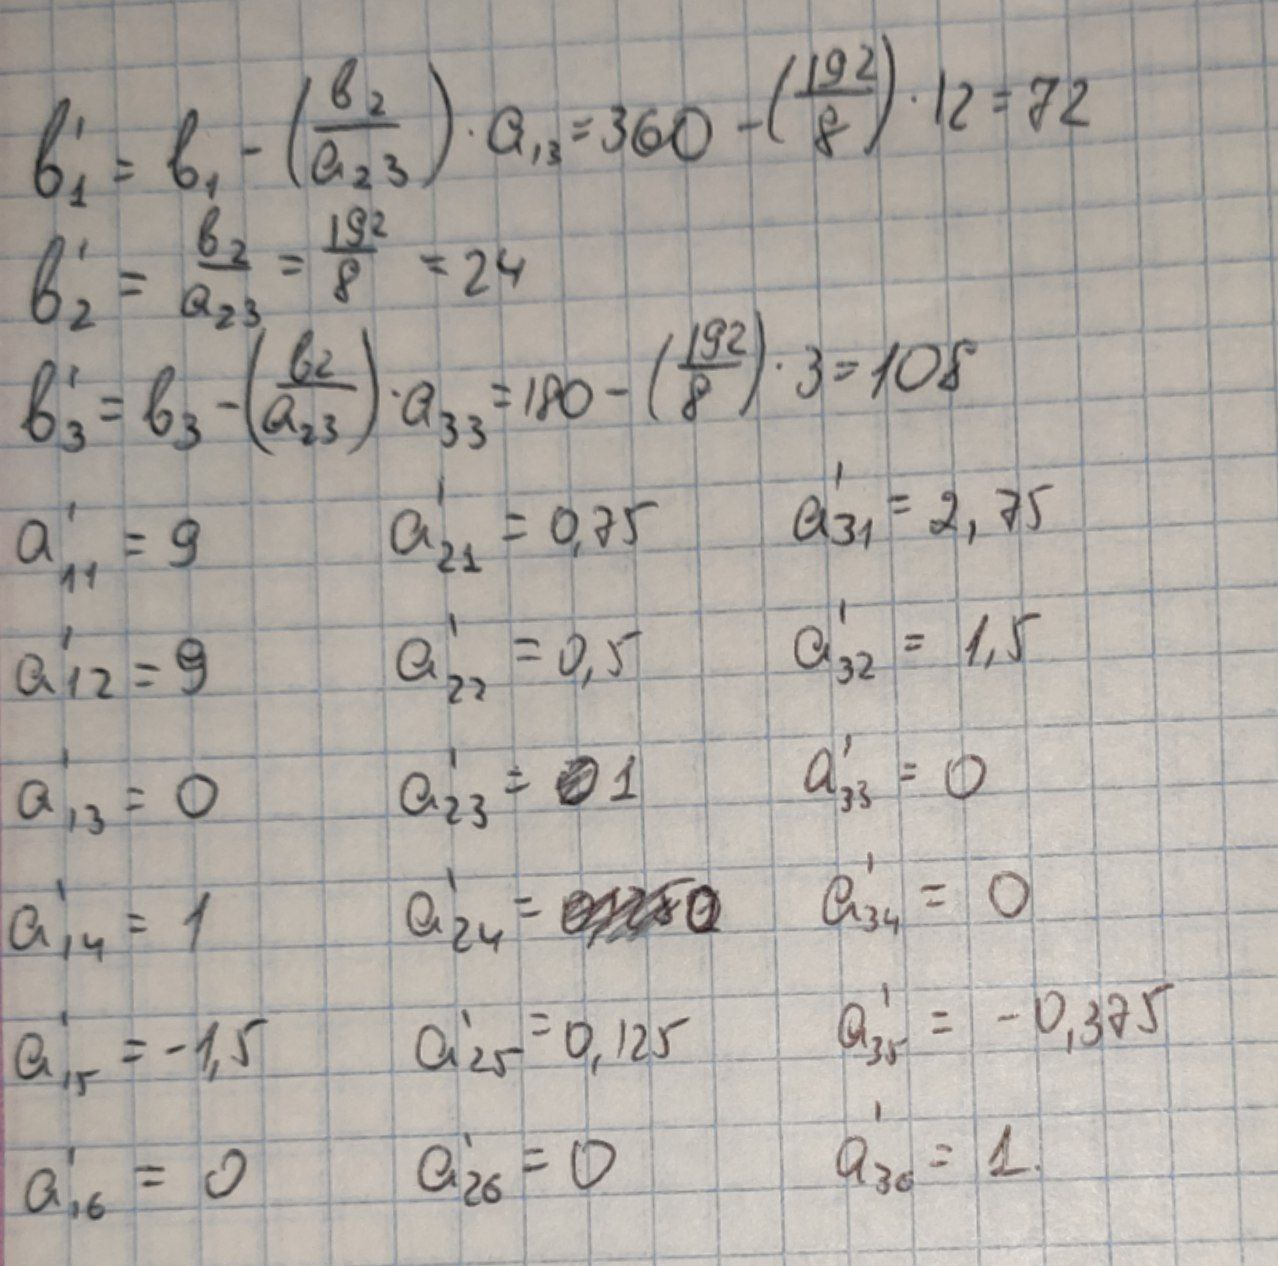 b'₁ = b₁ - (b₂/a₂₃) · a₁₃ = 360 - (192/8) · 12 = 72
b'₂ = b₂/a₂₃ = 192/8 = 24
b'₃ = b₃ - (b₂/a₂₃) · a₃₃ = 180 - (192/8) · 3 = 108
a'₁₁ = 9 a'₂₁ = 0,75 a'₃₁ = 2,75
a'₁₂ = 9 a'₂₂ = 0,5 a'₃₂ = 1,5
a'₁₃ = 0 a'₂₃ = 1 a'₃₃ = 0
a'₁₄ = 1 a'₂₄ = 0 a'₃₄ = 0
a'₁₅ = -1,5 a'₂₅ = 0,125 a'₃₅ = -0,375
a'₁₆ = 0 a'₂₆ = 0 a'₃₆ = 1.